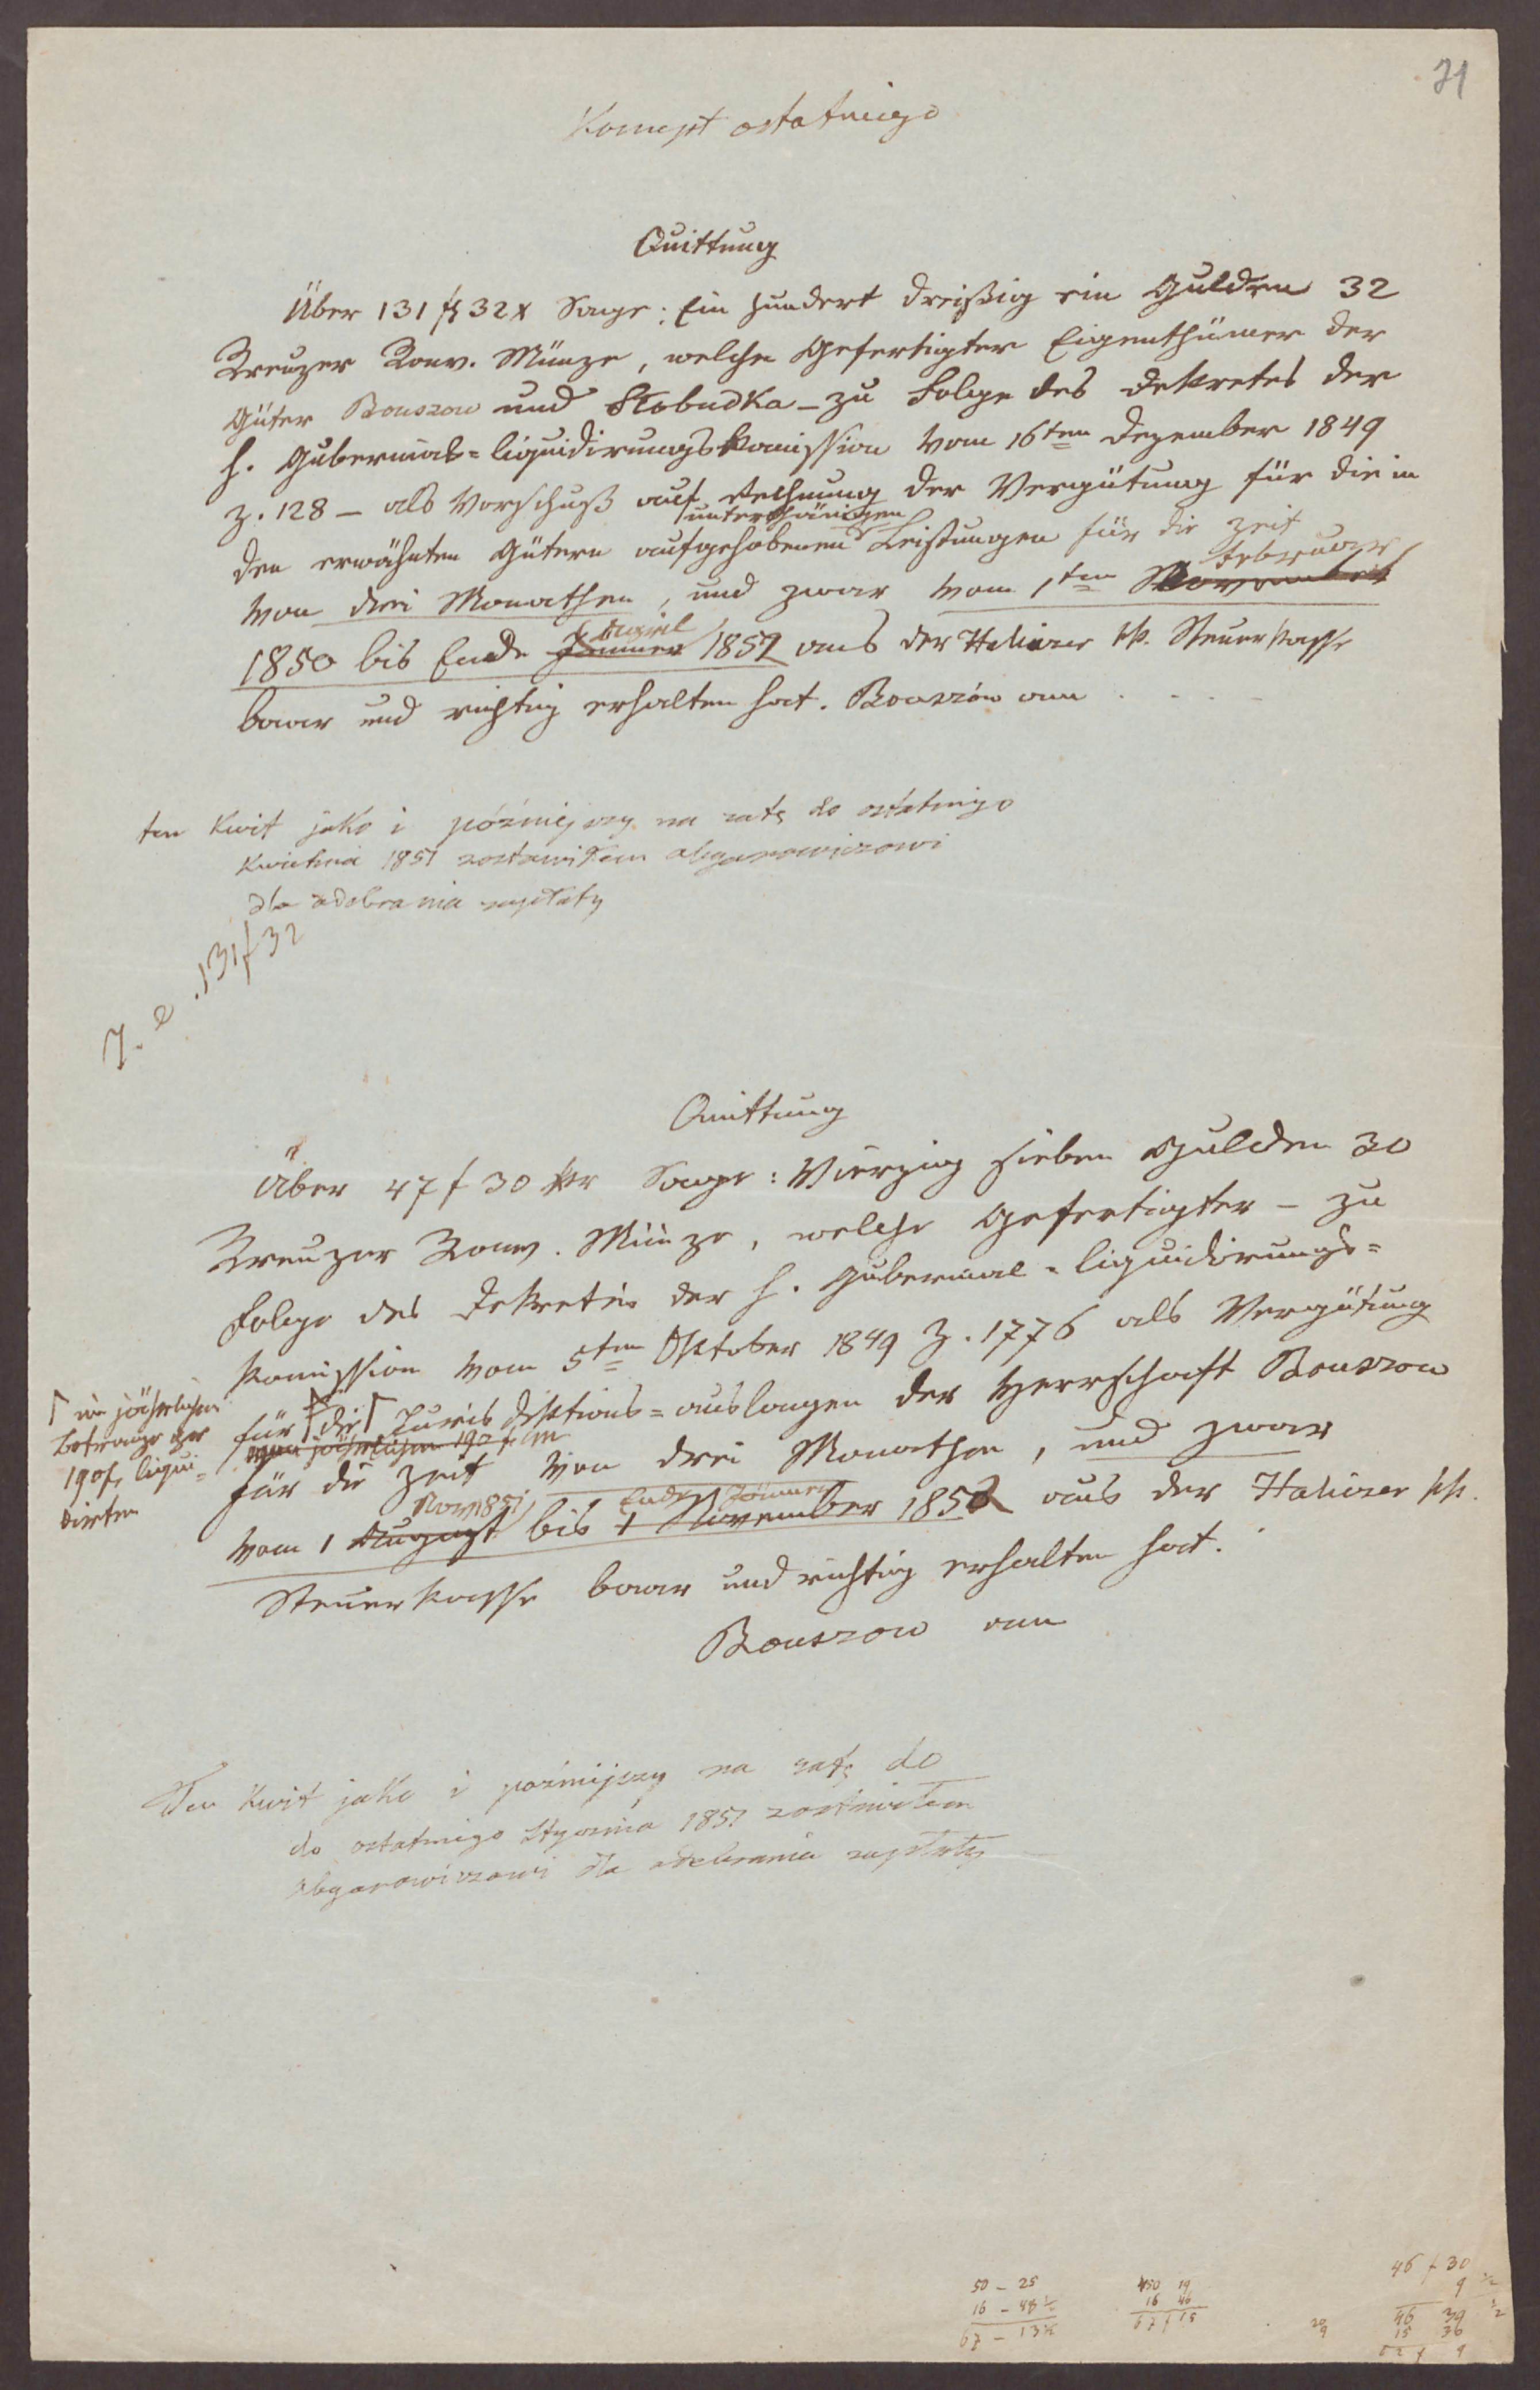 71
Koncept ostatniego
Quittung
Über 131 f 32 x Sage: Ein hundert dreißig ein Gulden 32
Kreuzer Konv. Münze, welche Gefertigter Eigenthümer der
Güter Bouszow und Słobudka – zu Folge des Dekretes der
h. Gubernial=liquidirungskomission vom 16ten Dezember 1849
Z. 128 – als Vorschuß auf Rechnung der Vergütung für die in
unterthänigen
den erwähnten Gütern aufgehobenen Leistungen für die Zeit
Februar
von drei Monathen, und zwar vom 1ten November
April
1850 bis Ende Jänner 1851 aus der Haliczer kk. Steuerkasse
baar und richtig erhalten hat. Bouszów am . . . .
ten kwit jako i późniejszy na ratę do ostatniego
kwietnia 1851 zostawiłem Abgarowiczowi
dla odebrania wypłaty
131 f 32
Quittung
Über 47 f 30 kr Sage: Vierzig sieben Gulden 30
Kreuzer Konv. Münze, welche Gefertigter – zu
Folge des Dekretes der h. Gubernial=liquidirungs=
komission vom 5ten Oktober 1849 Z. 1776 als Vergütung
für die Jurisdiktions=auslagen der Herrschaft Bouszow
im jährlichen
Betrage per
190 f, liqui=
dirten
jährlichen 190 f CM
für die Zeit von drei Monathen, und zwar
Nov. 1851 Ende Jänner
vom 1 August bis 1 November 1852 aus der Haliczer kk.
Steuerkasse baar und richtig erhalten hat.
Bouszow am
Ten kwit jako i poźniejszy na ratę do
do ostatniego Stycznia 1851 zostawiłem
Abgarowiczowi dla odebrania wypłaty
50 – 25
16 – 48 ½
67 – 13 ½
450 19
16 46
67 f 15
46 f 30
9 ½
46 39 ½
15 30
20
9
62 f 9